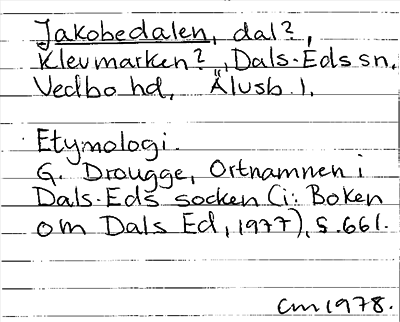 Jakobedalen, dal?,
Klevmarken?, Dals-Eds sn,
Vedbo hd, Älvsb. l.
Etymologi.
G. Drougge, Ortnamnen i
Dals-Eds socken (i: Boken
om Dals Ed, 1977), s. 661.
CM 1978.